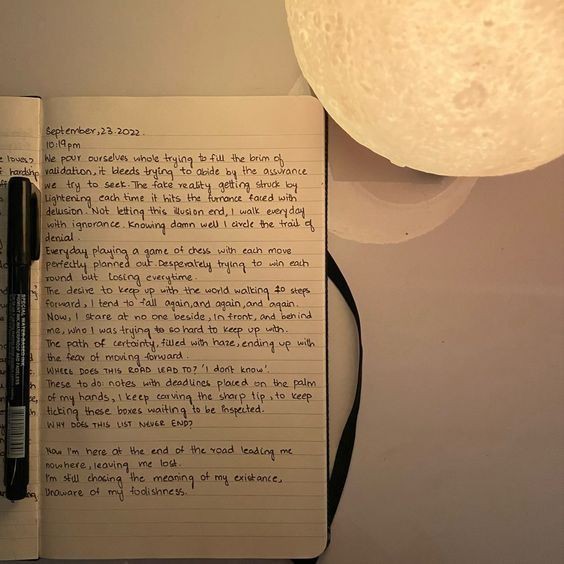 September, 23. 2022.
10:19 pm
We pour ourselves whole trying to fill the brim of
validation, it bleeds trying to abide by the assurance
we try to seek. The fake reality getting struck by
lightening each time it hits the furnance faced with
delusion. Not letting this illusion end, I walk everyday
with ignorance. Knowing damn well I circle the trail of
denial.
Everyday playing a game of chess with each move
perfectly planned out. Desperately trying to win each
round but losing everytime.
The desire to keep up with the world walking 10 steps
forward, I tend to fall again, and again, and again.
Now, I stare at no one beside, in front, and behind
me, who I was trying to so hard to keep up with.
The path of certainty, filled with haze, ending up with
the fear of moving forward.
WHERE DOES THIS ROAD LEAD TO? 'I don't know'.
These to do notes with deadlines placed on the palm
of my hands, I keep carving the sharp tip, to keep
ticking these boxes waiting to be inspected.
WHY DOES THIS LIST NEVER END?
Now I'm here at the end of the road leading me
nowhere, leaving me lost.
I'm still chasing the meaning of my existance,
Unaware of my foolishness.
loves?
hardship